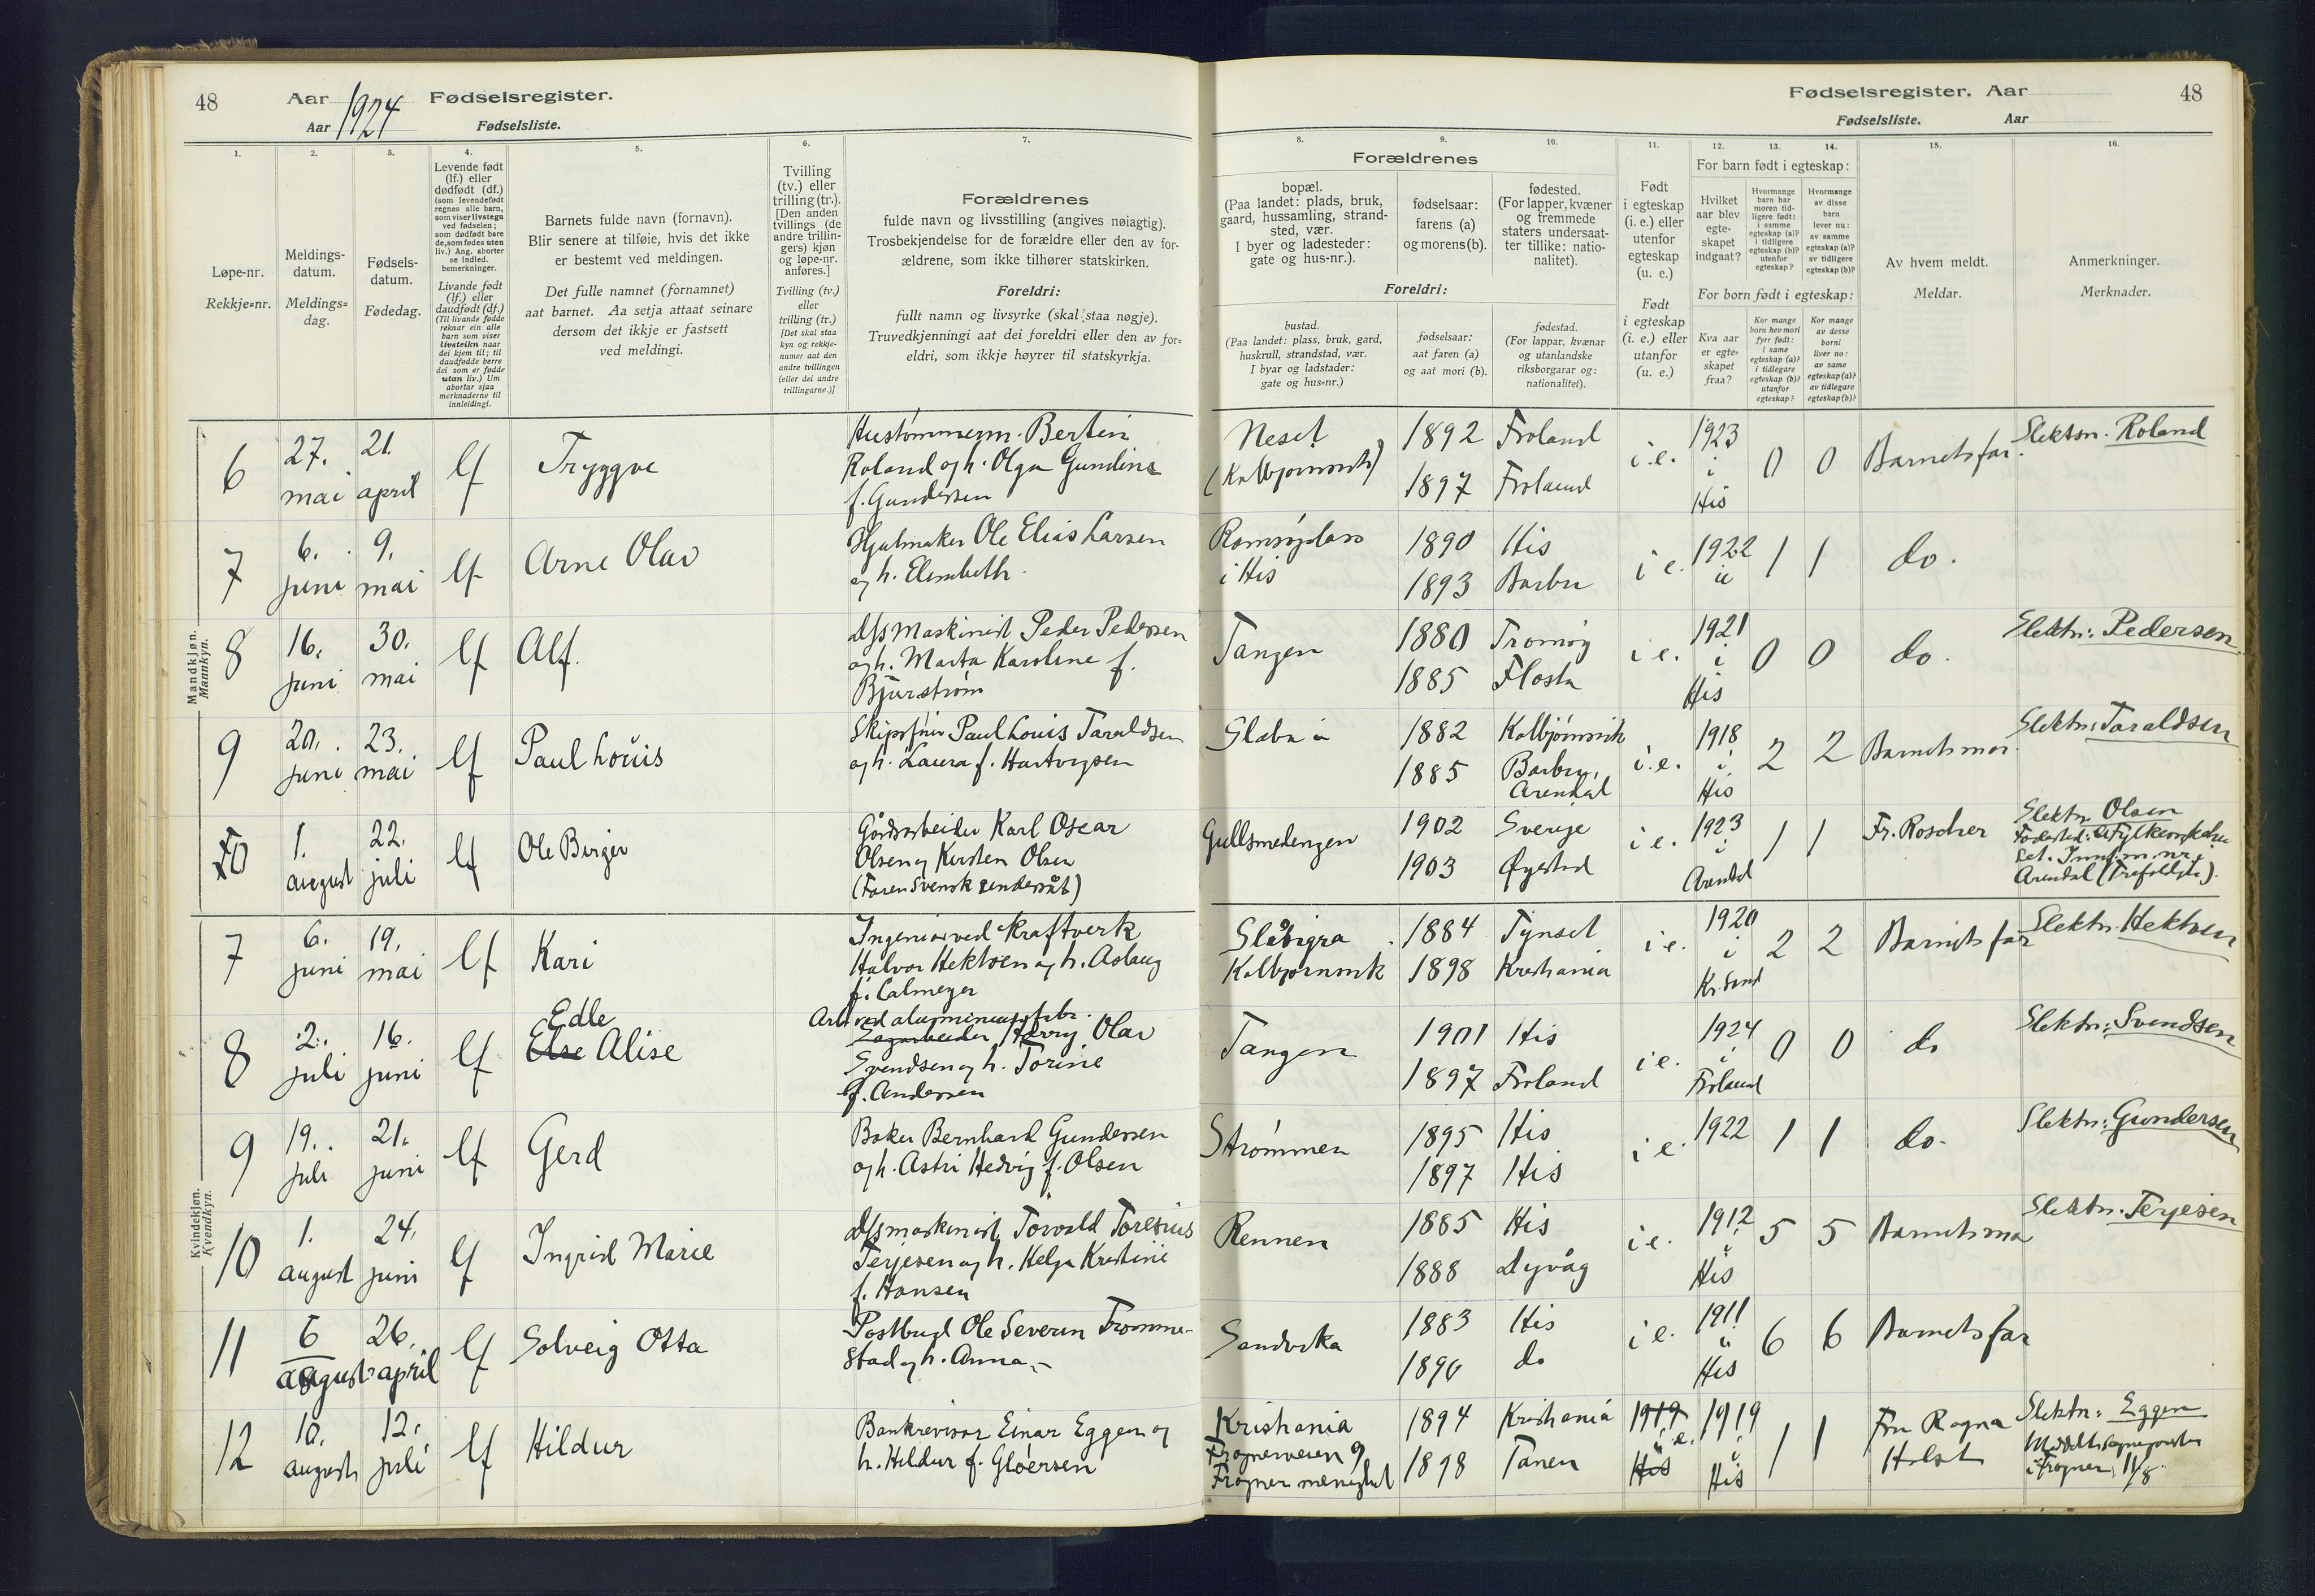 48 Aar 1924 Fødselsregister.
Aar Fødselsliste.
Fødselsregister. Aar 48
Fødselsliste. Aar
1. 2. 3. 4. 5. 6. 7. 8. 9. 10. 11. 12. 13. 14. 15. 16.
Løpe-nr.
Rekkje=nr.
Meldings-
datum.
Meldings=
dag.
Fødsels-
datum.
Fødedag.
Levende født
(lf.) eller
dødfødt (df.)
(som levendefødt
regnes alle barn,
som viser livstegn
ved fødselen;
som dødfødt bare
de, som fødes uten
liv.) Ang. aborter
se indled.
bemerkninger.
Livande født
(lf.) eller
daudfødt (df.)
(Til livande fødde
reknar ein alle
barn som viser
livsteikn naar
dei kjem til; til
daudfødde berre
dei som er fødde
utan liv.) Um
abortar sjaa
merknaderne til
innleidingi.
Barnets fulde navn (fornavn).
Blir senere at tilføie, hvis det ikke
er bestemt ved meldingen.
Det fulle namnet (fornamnet)
aat barnet. Aa setja attaat seinare
dersom det ikkje er fastsett
ved meldingi.
Tvilling
(tv.) eller
trilling (tr.).
[Den anden
tvillings (de
andre trillin-
gers) kjøn
og løpe-nr.
anføres.]
Tvilling (tv.)
eller
trilling (tr.)
[Det skal staa
kyn og rekkje-
numer aat den
andre tvillingen
(eller dei andre
trillingarne.)]
Forældrenes
fulde navn og livsstilling (angives nøiagtig).
Trosbekjendelse for de forældre eller den av for-
ældrene, som ikke tilhører statskirken.
Foreldri:
fullt namn og livsyrke (skal staa nøgje).
Truvedkjenningi aat dei foreldri eller den av for=
eldri, som ikkje høyrer til statskyrkja.
Forældrenes
bopæl.
(Paa landet: plads, bruk,
gaard, hussamling, strand-
sted, vær.
I byer og ladesteder:
gate og hus-nr.).
fødselsaar:
farens (a)
og morens (b).
fødested.
(For lapper, kvæner
og fremmede
staters undersaat-
ter tillike: natio-
nalitet).
Foreldri:
bustad.
(Paa landet: plass, bruk, gard,
huskrull, strandstad, vær.
I byar og ladstader:
gate og hus=nr.)
fødselsaar:
aat faren (a)
og aat mori (b).
fødestad.
(For lappar, kvænar
og utanlandske
riksborgarar og:
nationalitet).
Født
i egteskap
(i. e.) eller
utenfor
egteskap
(u. e.)
Født
i egteskap
(i. e.) eller
utanfor
(u. e.)
For barn født i egteskap:
Hvilket
aar blev
egte-
skapet
indgaat?
Hvormange
barn har
moren tid-
ligere født:
i samme
egteskap (a)?
i tidligere
egteskap (b)?
utenfor
egteskap?
Hvormange
av disse
barn
lever nu:
av samme
egteskap (a)?
av tidligere
egteskap (b)?
For born født i egteskap:
Kva aar
er egte=
skapet
fraa?
Kor mange
born hev mori
fyrr født:
i same
egteskap (a)?
i tidlegare
egteskap (b)?
utanfor
egteskap?
Kor mange
av desse
borni
liver no:
av same
egteskap (a)?
av tidlegare
egteskap (b)?
Av hvem meldt.
Meldar.
Anmerkninger.
Merknader.
Mandkjøn.
Mannkyn.
6 27. mai 21. april lf Tryggve Hustømmerm. Bertin
Roland og h. Olga Gundine
f. Gundersen
Neset 1892 Froland 1897 Froland i.e. 1923 i His 0 0 Barnets far. Slektsn. Roland
7 6. juni 9. mai lf Arne Olav Hjulmaker Ole Elias Larsen
og h. Elisabeth
i His 1890 His 1893 Barbu i e. 1922 1 1 do.
8 16. juni 30. mai lf Alf. D/s Maskinist Peder Pedersen
og h. Marta Karoline f.
Bjurstrøm
Tangen 1880 Tromøy 1885 Flosta i e. 1921 i His 0 0 do. Slektn: Pedersen
9 20. juni 23. mai lf Paul Louis Skipsfører Paul Louis Taraldsen
og h. Laura f. Hartvigsen
1882 Kolbjørnsvik 1885 Barbu, Arendal i.e. 1918 i His 2 2 Barnets mor. Slektn: Taraldsen
10 1. august 22. juli lf Ole Birger Gårdsarbeider Karl Oscar
Olsen og Kirsten Olsen
(Faren Svensk undersåt)
Gullsmedengen 1902 Sverige 1903 Øyestad i e. 1923 i Arendal 1 1 Fr. Roscher Slektn. Olsen
Arendal
Kvindekjøn.
Kvendkyn.
7 6. juni 19. mai lf Kari Ingeniør ved Kraftverk
Halvor Hektoen og h. Aslaug
f. Calmeyer
Kolbjørnsvik 1884 Tynset 1898 Kristiania i e. 1920 i Kr.sand 2 2 Barnets far Slektn. Hektoen
8 2. juli 16. juni lf Edle
Else Alise Arb. ved aluminiumsfabr.
Sagarbeider Harry Olav
Svendsen og h. Torine
f. Andersen
Tangen 1901 His 1897 Froland i e. 1924 i Froland 0 0 do Slektn: Svendsen
9 19. juli 21. juni lf Gerd Baker Bernhard Gundersen
og h. Astri Hedvig f. Olsen
Strømmen 1895 His 1897 His i e. 1922 1 1 do. Slektn: Gundersen
10 1. august 24. juni lf Ingrid Marie D/s maskinist Torvald Toresius
Terjesen og h. Helga Kristine
f. Hansen
Rennen 1885 His 1888 Dypvåg i e. 1912 i His 5 5 Barnets mor Slektn. Terjesen
11 6 august 26. april lf Solveig Otta Postbud Ole Severin Tromme-
stad og h. Anna
Sandvika 1883 His 1890 do i e. 1911 i His 6 6 Barnets far
12 10. august 12. juli lf Hildur Bankrevisor Einar Eggen og
h. Hildur f. Gløersen
Kristiania
Frognerveien 9
Frogner menighet 1894 Kristiania 1898 Tanen 1919 i e. His 1919 i His 1 1 Fru Ragna
Holst Slektn: Eggen
Meddelt sogneprest
i Frogner 11/8.